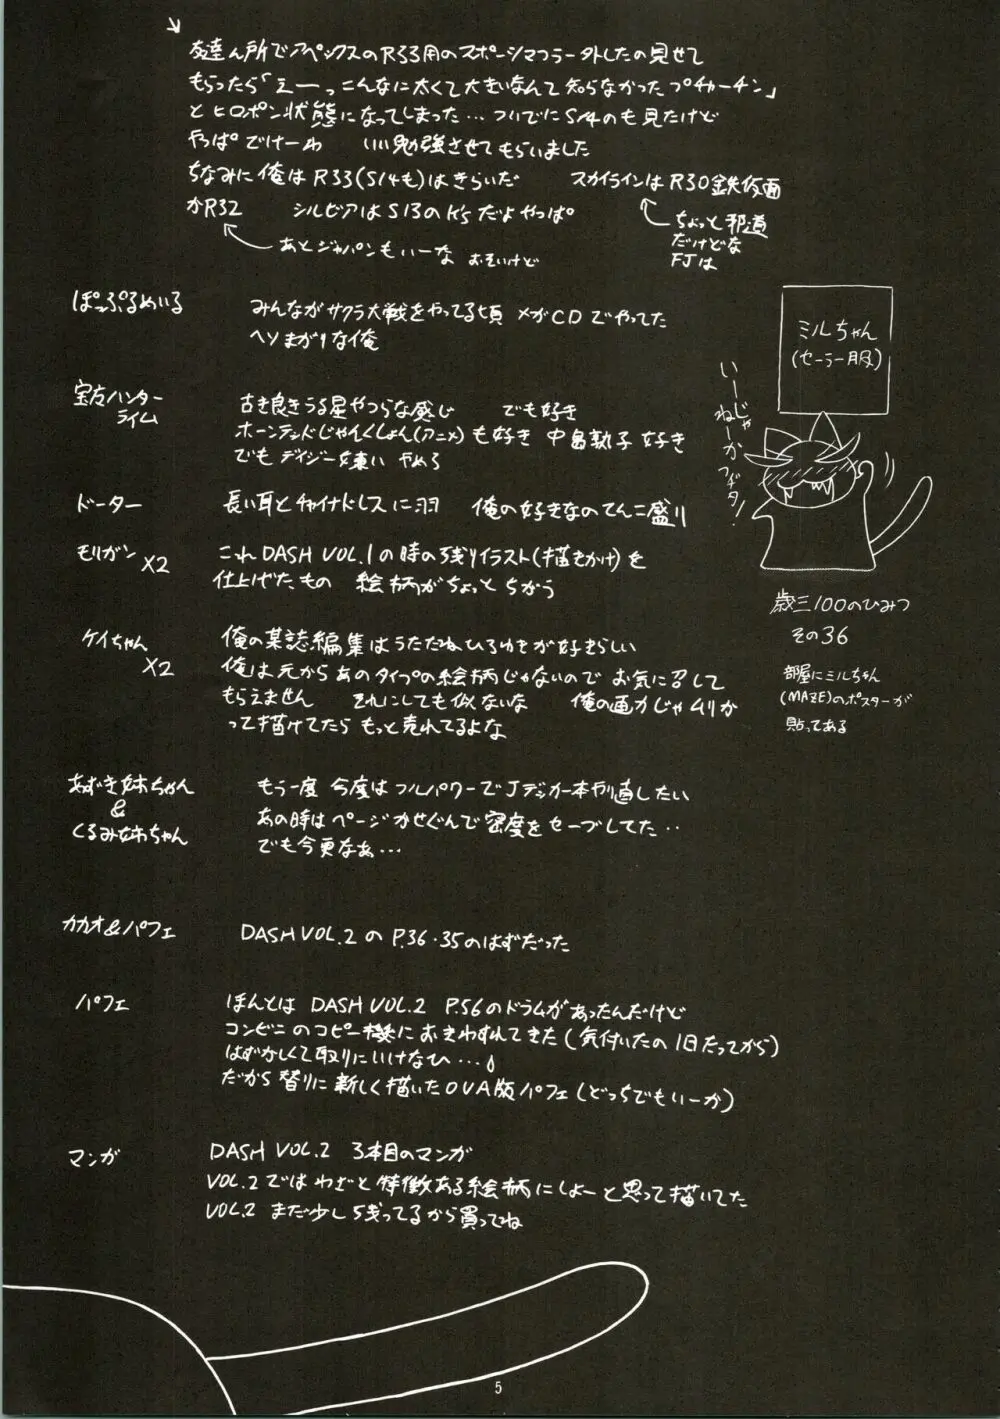 友達ん所でアペックスのR33用のスポーツマフラー外したの見せて
もらったら「えーっこんなに太くて大きいなんて知らなかったプチカーチン」
とヒロポン状態になってしまった…ついでにS14のも見たけど
やっぱでけーわ　いい勉強させてもらいました
ちなみに俺はR33(S14も)はきらいだ　スカイラインはR30鉄仮面
かR32　シルビアはS13のK'sだよやっぱ
ちょっと邪道
だけどな
FJは
あとジャパンもいーな おそいけど
ぽっぷるめいる
みんながサクラ大戦をやってる頃 メガCDでやってた
ヘソまがりな俺
宝友ハンター
ライム
古き良きうる星やつらな感じ　でも好き
ホーンテッドじゃんくしょん(アニメ)も好き 中島敦子 好き
でもデイジー嫌い やめろ
ドーター
長い耳とチャイナドレスに羽　俺の好きなのてんこ盛り
モリガン
X2
これDASH VOL.1の時の残りイラスト(描きかけ)を
仕上げたもの 絵柄がちょっとちがう
ケイちゃん
X2
俺の某誌編集はうたたねひろゆきが好きらしい
俺は元からあのタイプの絵柄じゃないので お気に召して
もらえません　それにしても似ないな　俺の画力じゃムリか
って描けてたら もっと売れてるよな
あずき姉ちゃん
&
くるみ姉ちゃん
もう一度 今度はフルパワーでJデッカー本作り直したい
あの時はページかせぐんで密度をセーブしてた‥
でも今更なあ…
カカオ&パフェ
DASH VOL.2の P.36・35のはずだった
パフェ
ほんとは DASH VOL.2 P.56のドラムがあったんだけど
コンビニのコピー機におきわすれてきた(気付いたの1日たってから)
はずかしくて取りにいけなひ…
だから替りに新しく描いたOVA版パフェ(どっちでもいーか)
マンガ
DASH VOL.2 3本目のマンガ
VOL.2ではわざと特徴ある絵柄にしよーと思って描いてた
VOL.2 まだ少し残ってるから買ってね
ミルちゃん
(セーラー服)
いーじゃ
ねーか
歳三100のひみつ
その36
部屋にミルちゃん
(MAZE)のポスターが
貼ってある
5